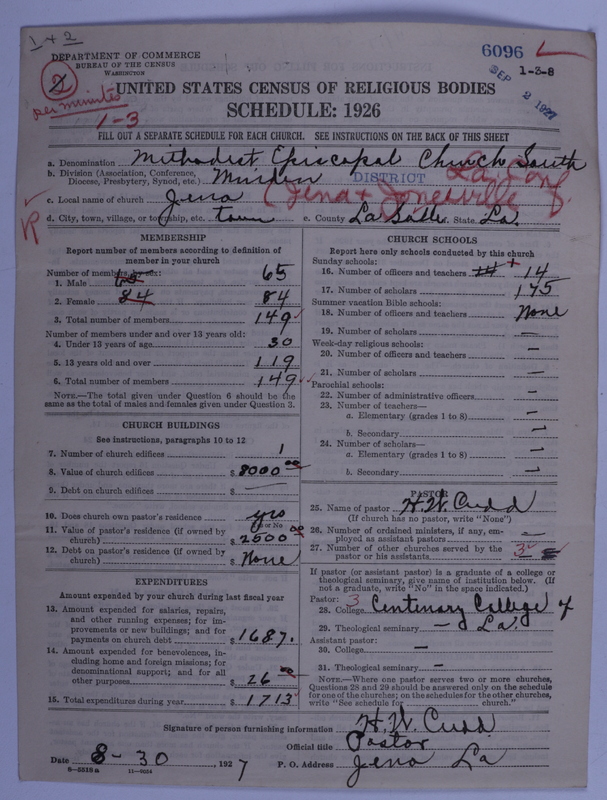 1 + 2
DEPARTMENT OF COMMERCE
BUREAU OF THE CENSUS
WASHINGTON
6096
1-3-8
SEP 2 1927
2
per minutes
1-3
UNITED STATES CENSUS OF RELIGIOUS BODIES
SCHEDULE: 1926
FILL OUT A SEPARATE SCHEDULE FOR EACH CHURCH. SEE INSTRUCTIONS ON THE BACK OF THIS SHEET
a. Denomination Methodist Episcopal Church South
b. Division (Association, Conference, Diocese, Presbytery, Synod, etc.) Minden DISTRICT La. Conf.
c. Local name of church Jena (Jena & Jonesville
d. City, town, village, or township, etc. town e. County La Salle f. State La.
R
MEMBERSHIP
Report number of members according to definition of member in your church
Number of members by sex:
1. Male 65 65
2. Female 84 84
3. Total number of members 149
Number of members under and over 13 years old:
4. Under 13 years of age 30
5. 13 years old and over 119
6. Total number of members 149
NOTE.—The total given under Question 6 should be the same as the total of males and females given under Question 3.
CHURCH BUILDINGS
See instructions, paragraphs 10 to 12
7. Number of church edifices 1
8. Value of church edifices $ 8000 00
9. Debt on church edifices $ —
10. Does church own pastor's residence yes
Yes or No
11. Value of pastor's residence (if owned by church) $ 2500 00
12. Debt on pastor's residence (if owned by church) $ None
EXPENDITURES
Amount expended by your church during last fiscal year
13. Amount expended for salaries, repairs, and other running expenses; for improvements or new buildings; and for payments on church debt $ 1687.
14. Amount expended for benevolences, including home and foreign missions; for denominational support; and for all other purposes $ 26 00
15. Total expenditures during year $ 1713
CHURCH SCHOOLS
Report here only schools conducted by this church
Sunday schools:
16. Number of officers and teachers 14 + 14
17. Number of scholars 175
Summer vacation Bible schools:
18. Number of officers and teachers None
19. Number of scholars —
Week-day religious schools:
20. Number of officers and teachers —
21. Number of scholars —
Parochial schools:
22. Number of administrative officers —
23. Number of teachers—
a. Elementary (grades 1 to 8) —
b. Secondary —
24. Number of scholars—
a. Elementary (grades 1 to 8) —
b. Secondary —
PASTOR
25. Name of pastor H. W. Cudd
(If church has no pastor, write "None")
26. Number of ordained ministers, if any, employed as assistant pastors —
27. Number of other churches served by the pastor or his assistants 3
If pastor (or assistant pastor) is a graduate of a college or theological seminary, give name of institution below. (If not a graduate, write "No" in the space indicated.)
Pastor: 3
28. College Centenary College of
29. Theological seminary — La.
Assistant pastor:
30. College —
31. Theological seminary —
NOTE.—Where one pastor serves two or more churches, Questions 28 and 29 should be answered only on the schedule for one of the churches; on the schedules for the other churches, write "See schedule for ........ church."
Signature of person furnishing information H. W. Cudd
Official title Pastor
Date 8-30, 1927 P. O. Address Jena La
8-5518a 11-9024